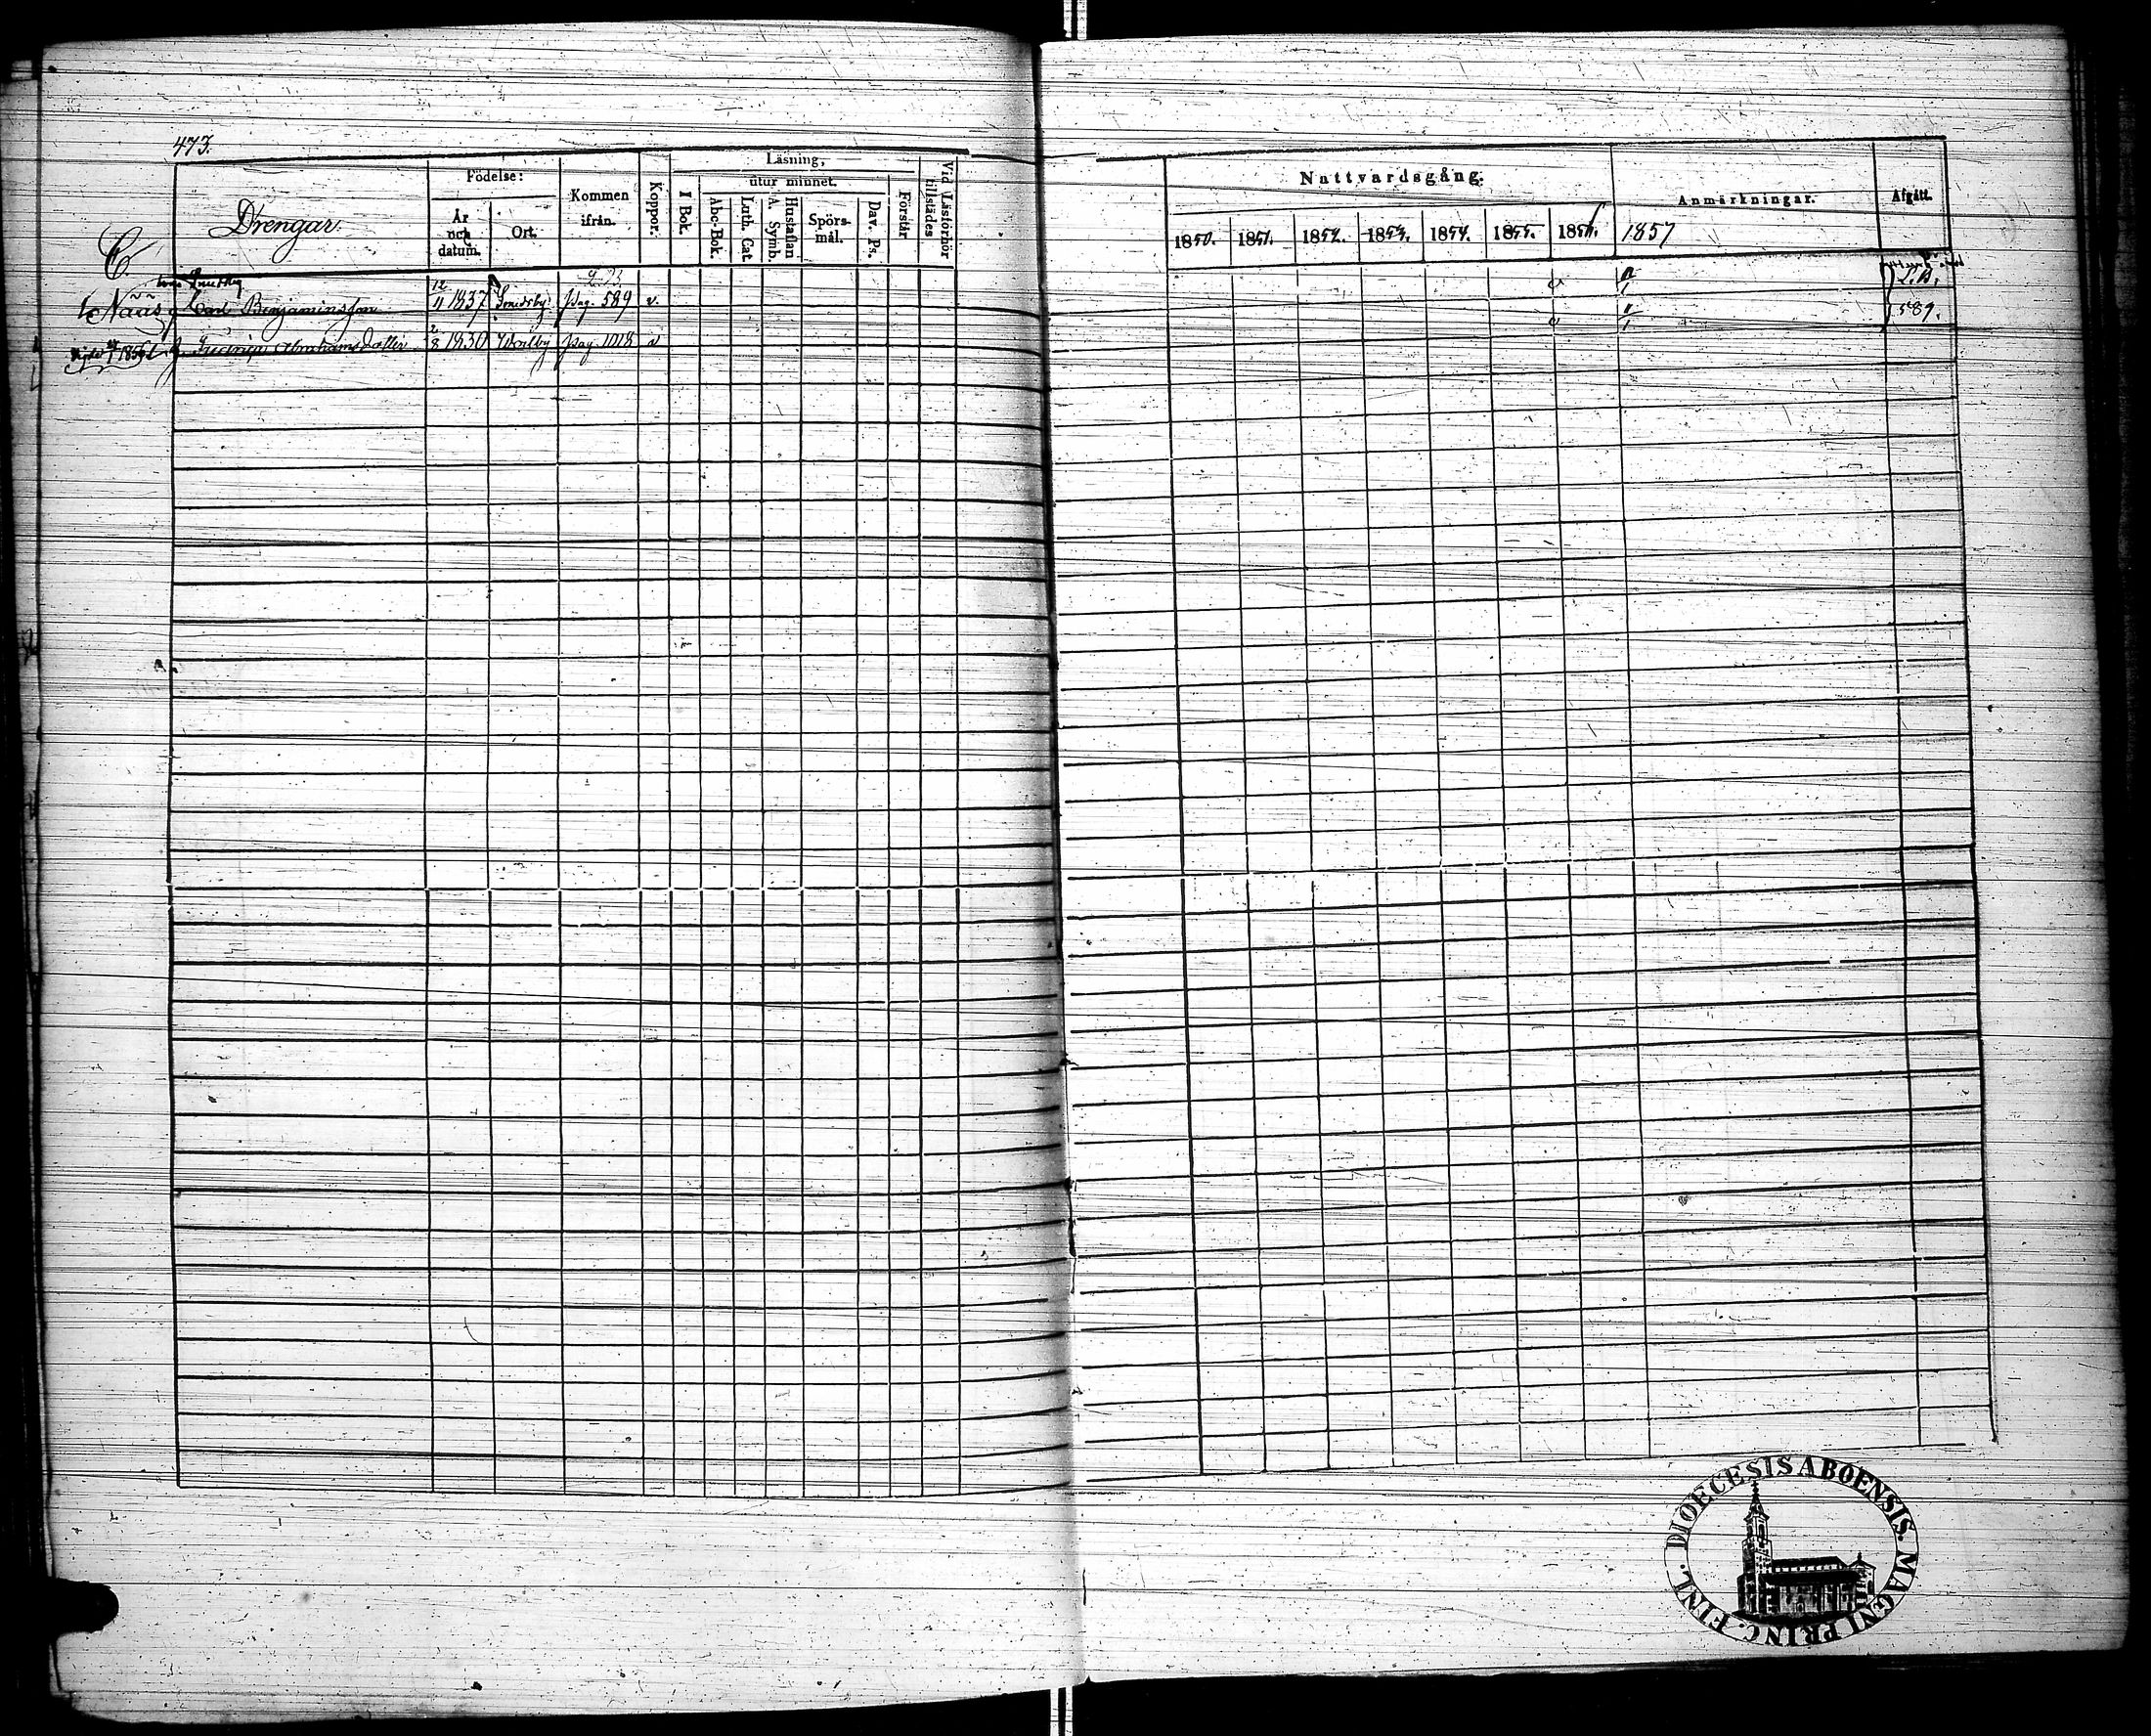 473.
C.
Drengar.
Födelse:
År och datum.
Ort.
Kommen ifrån.
Koppor.
Läsning,
I Bok.
utur minnet.
Abc-Bok.
Luth. Cat.
Hustaflan A. Symb.
Spörsmål.
Dav. Ps.
Förstår
Vid Läsförhör tillstädes
Nattvardsgång.
1850.
1851.
1852.
1853.
1854.
1855.
1856.
Anmärkningar.
1857
Afgått.
Näås Carl Benjaminsson 12/11 1837 Smedsby pag. 589 v.
589.
Abrahamsdotter 2/8 1830 pag. 1018 v
DIOECESIS ABOENSIS. MAGNI PRINC. FINL.